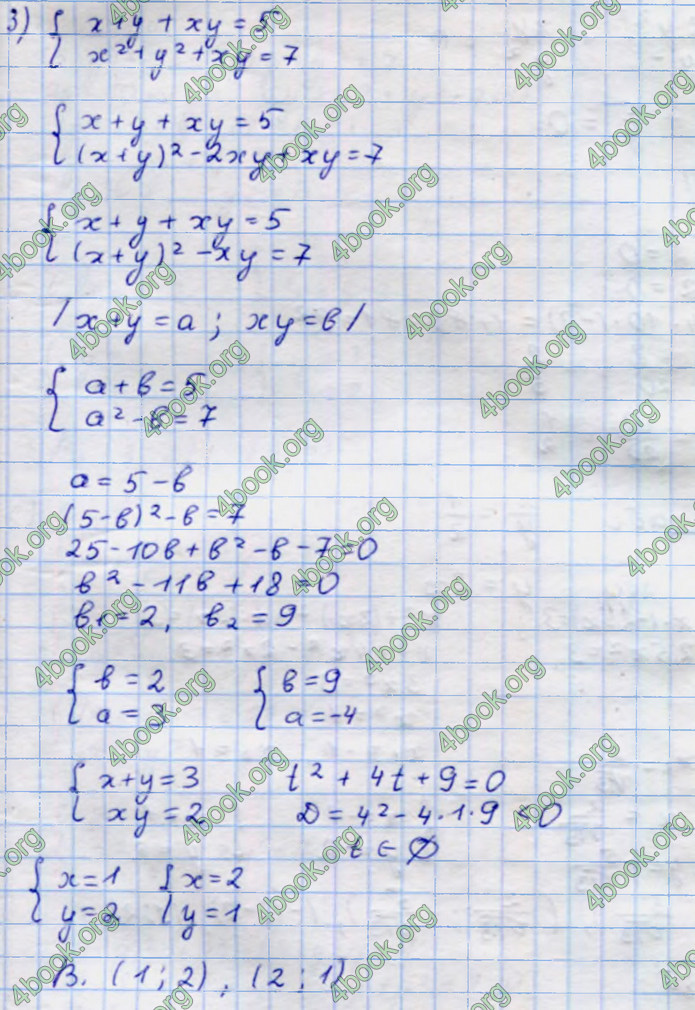 3) { x + y + xy = 5
{ x² + y² + xy = 7
{ x + y + xy = 5
{ (x + y)² - 2xy + xy = 7
{ x + y + xy = 5
{ (x + y)² - xy = 7
/ x + y = a ; xy = в /
{ a + в = 5
{ a² - в = 7
a = 5 - в
(5 - в)² - в = 7
25 - 10в + в² - в - 7 = 0
в² - 11в + 18 = 0
в₁ = 2, в₂ = 9
{ в = 2 { в = 9
{ a = 3 { a = -4
{ x + y = 3 t² + 4t + 9 = 0
{ xy = 2 D = 4² - 4·1·9 < 0
t ∈ ∅
{ x = 1 { x = 2
{ y = 2 { y = 1
В. (1 ; 2), (2 ; 1)
4book.org